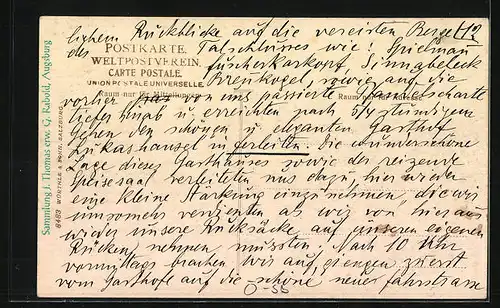 lichem Rückblicke auf die vereisten Berge (12
des Talschlusses wie! Spielman
POSTKARTE.
WELTPOSTVEREIN.
CARTE POSTALE.
UNION POSTALE UNIVERSELLE.
Fuscherkarkopf Sinnabeleck
Brenkogel, sowie auf die
Raum nur für
Raum nur für Adresse
vorher von uns passierte Pfandelscharte
liefen hinab u. erreichten nach 3/4 stündigem
Gehen den schönen u. eleganten Gasthof
Lukashansel in Ferleiten. Die wunderschöne
Lage dieses Gasthauses sowie der reizende
Speisesaal verleiteten uns dazu, hier wieder
eine kleine Stärkung einzunehmen, die wir
umsomehr verdienten als wir von hier aus
wieder unsere Rücksäcke auf unseren eigenen
Rücken nehmen mussten. Nach 10 Uhr
vormittags brachen wir auf, giengen zuerst
vom Gasthofe auf die schöne neue Fahrstrasse
Sammlung J. Thomas erw. G. Rabold, Augsburg
8483 WÜRTHLE & SOHN, SALZBURG